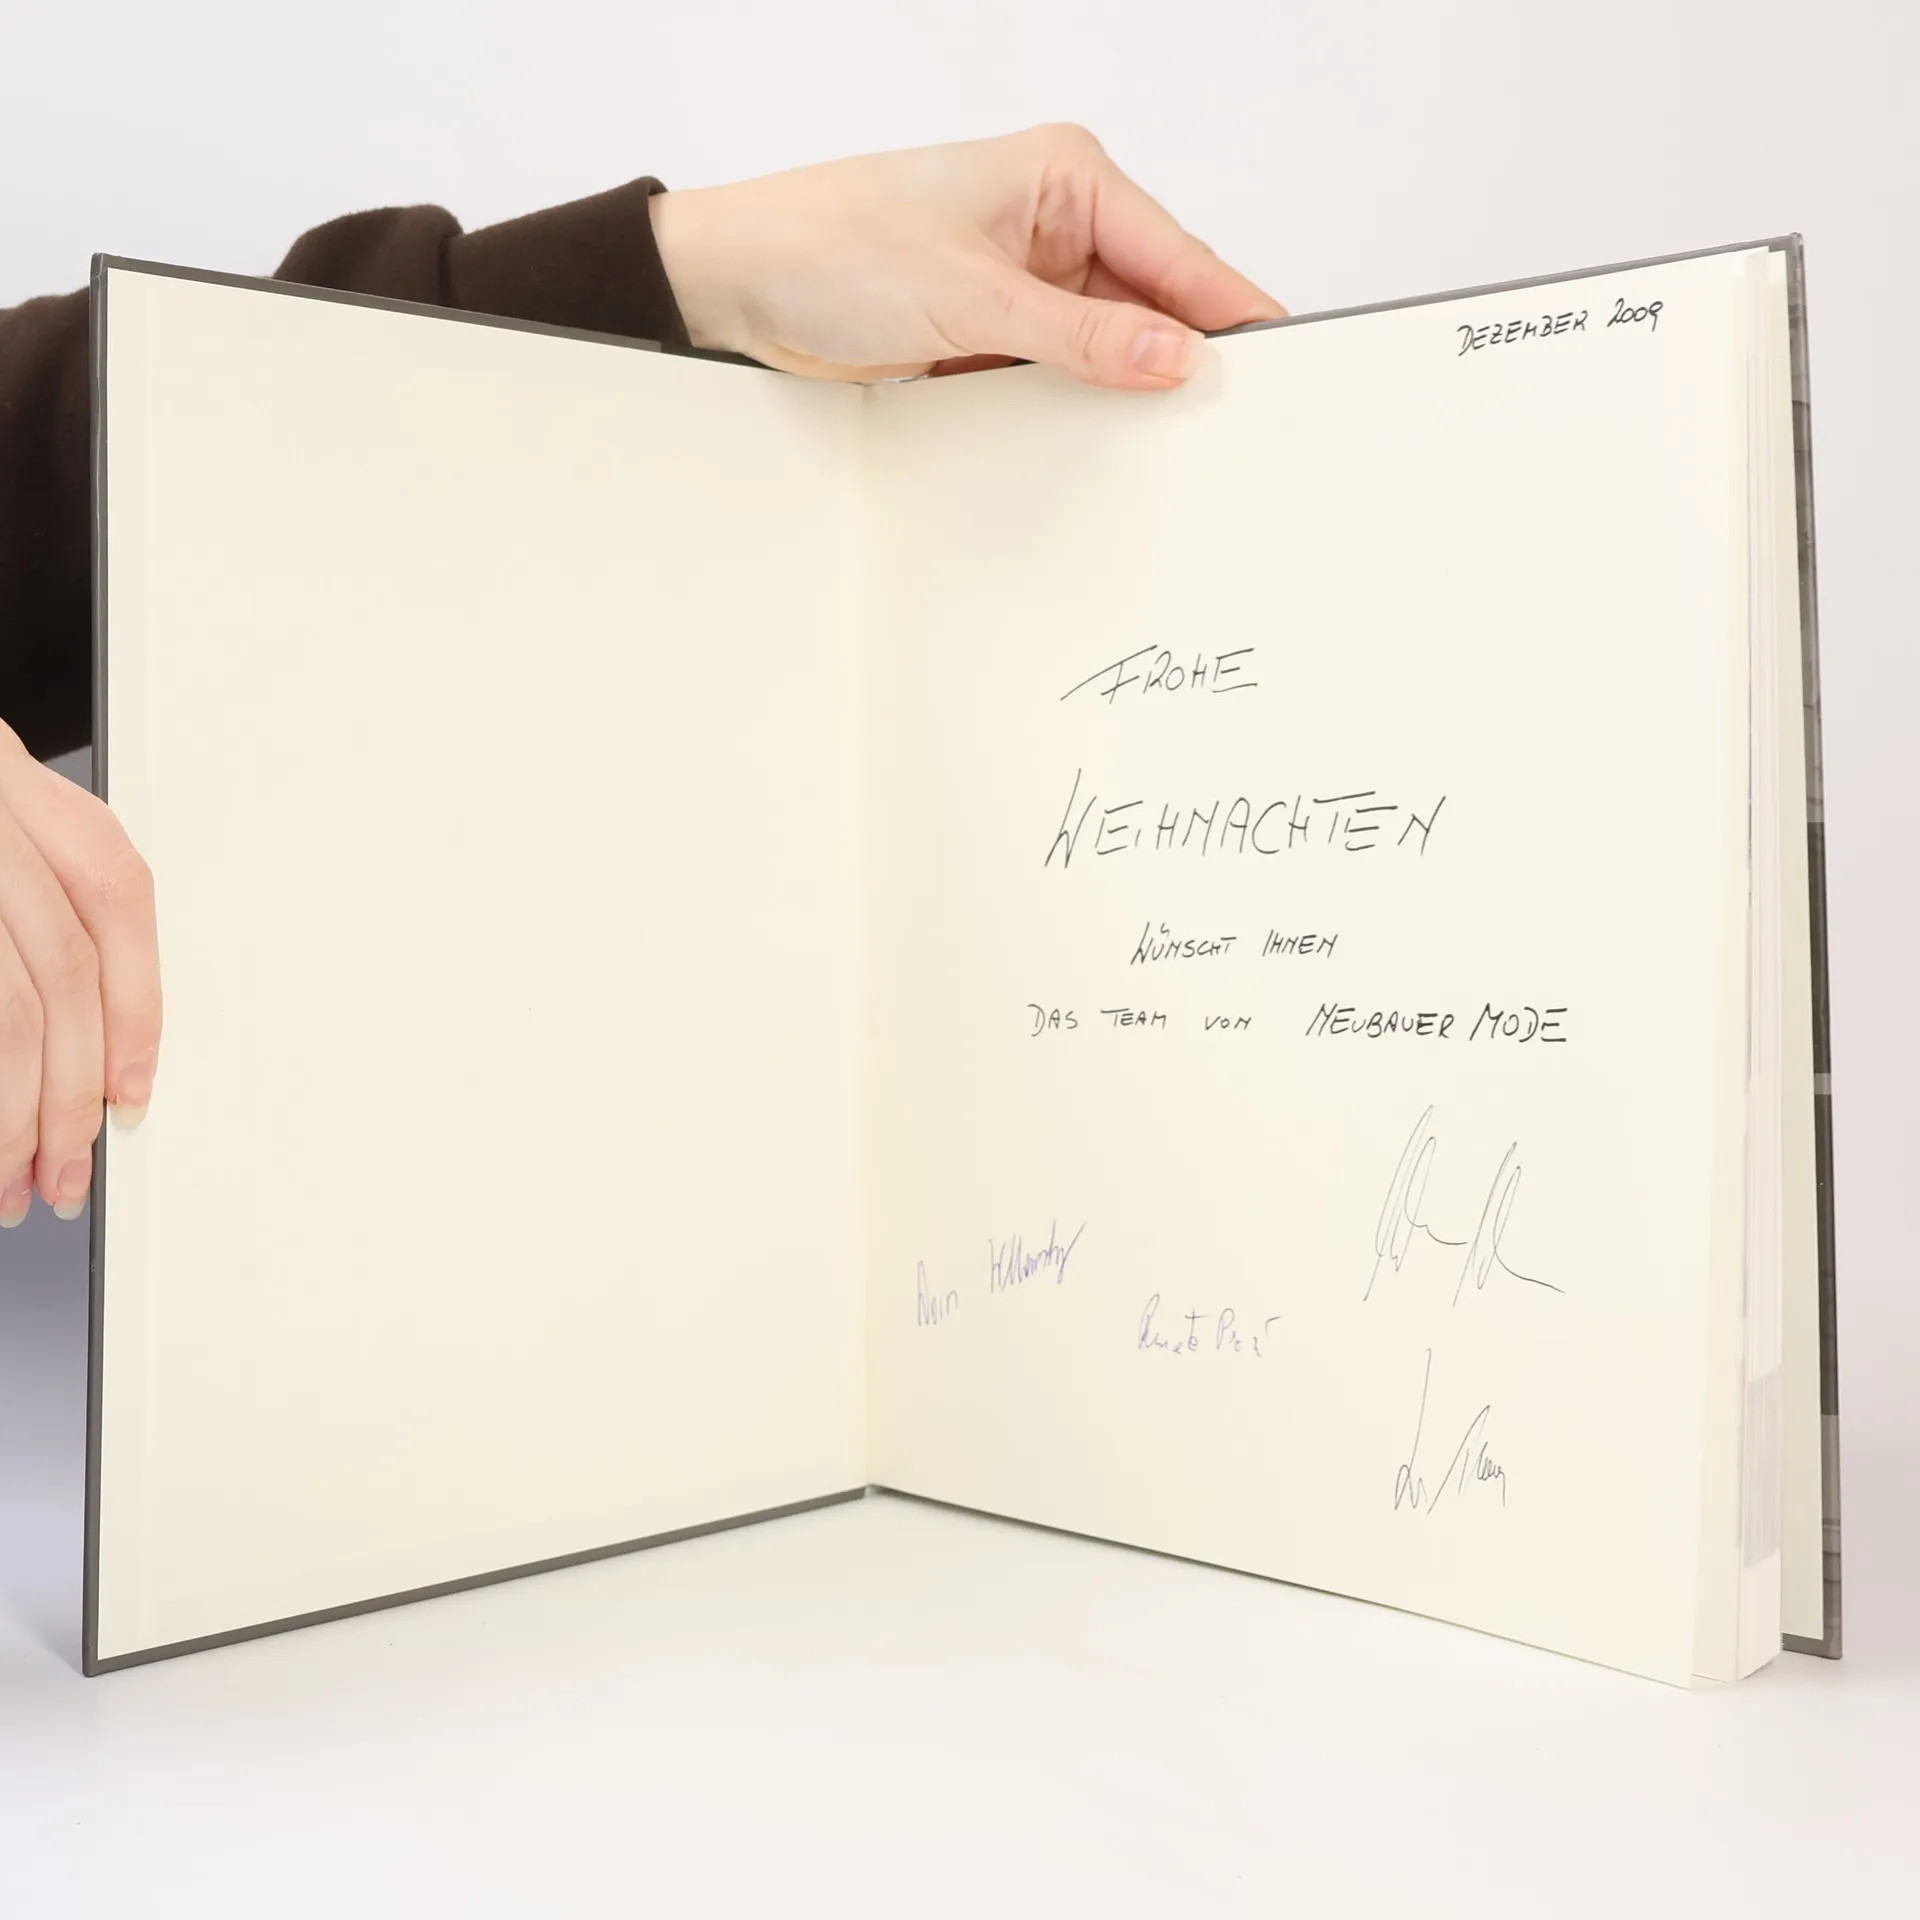 DEZEMBER 2009
FROHE
WEIHNACHTEN
WÜNSCHT IHNEN
DAS TEAM VON NEUBAUER MODE
Renate